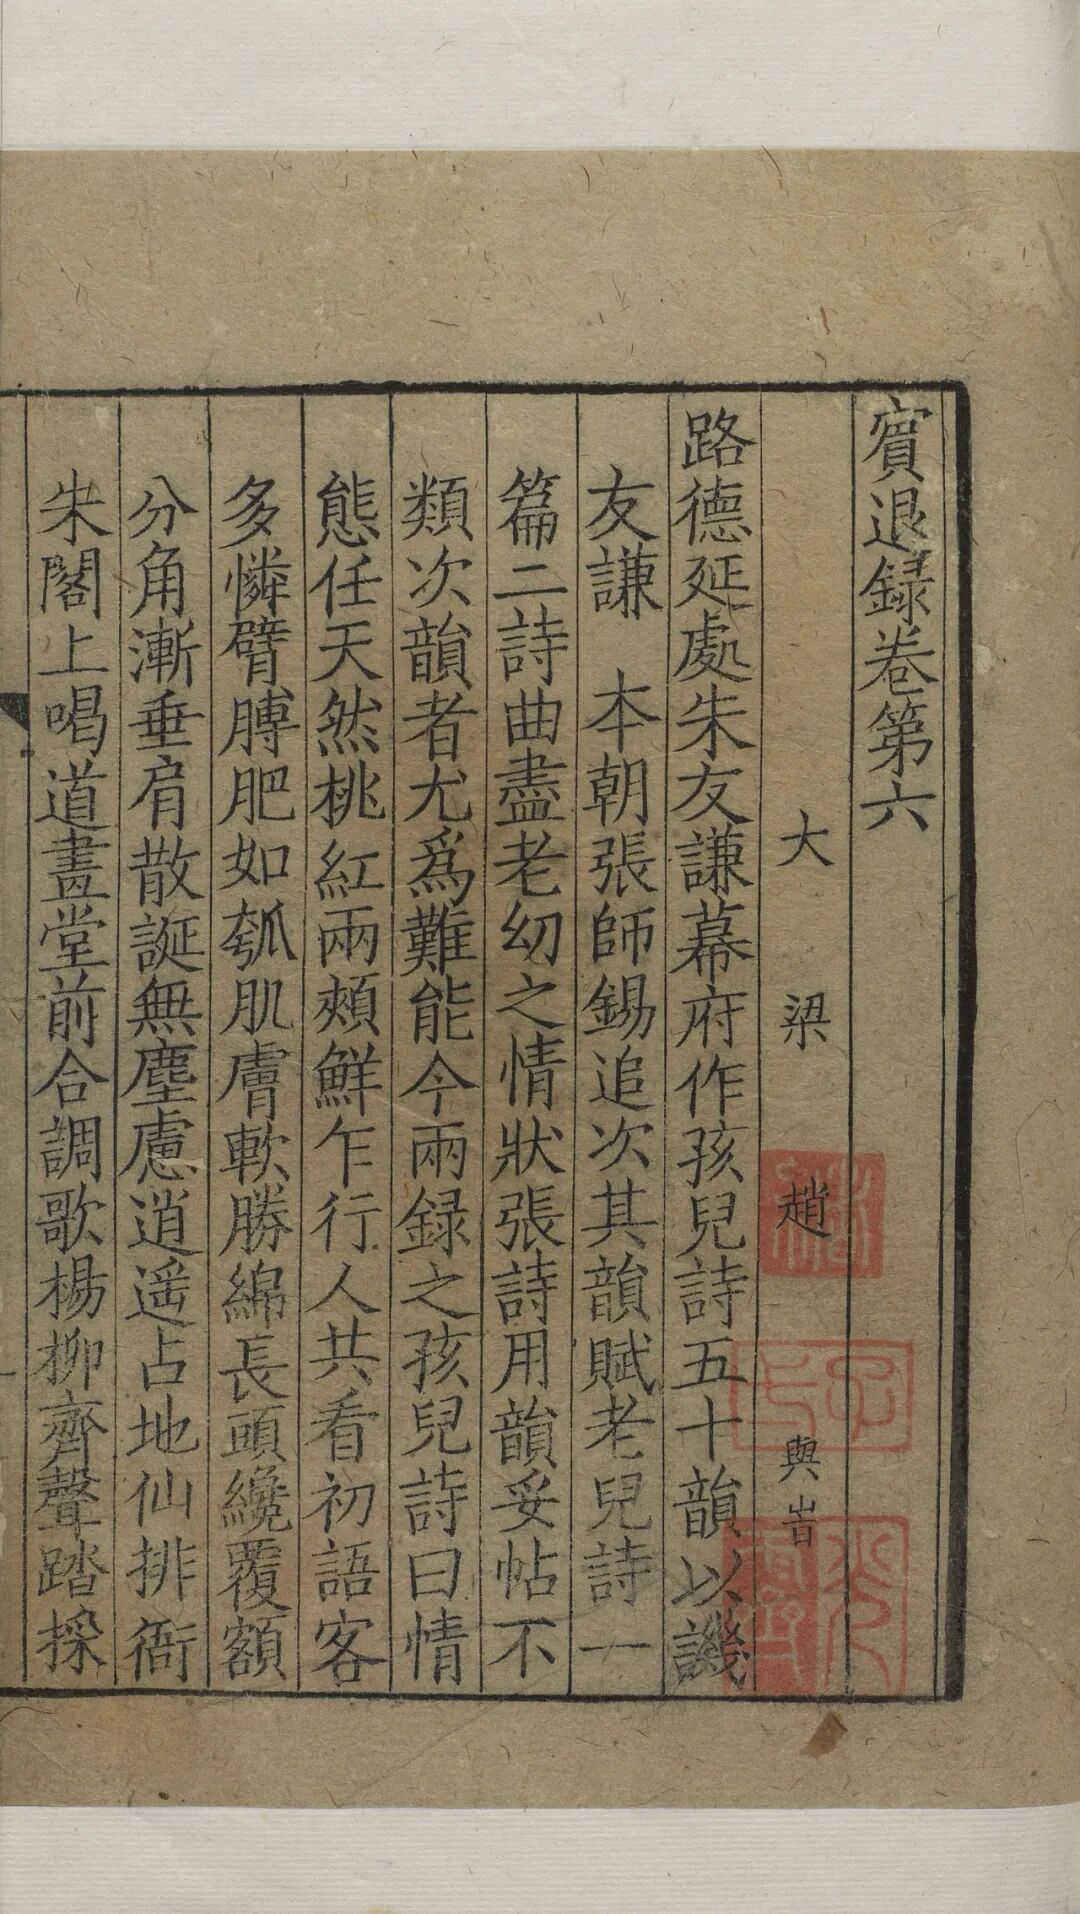 賓退録卷第六
大梁趙與旹
路德延處朱友謙幕府作孩兒詩五十韻以譏
友謙 本朝張師錫追次其韻賦老兒詩一
篇二詩曲盡老幼之情狀張詩用韻妥帖不
類次韻者尤爲難能今兩録之孩兒詩曰情
態任天然桃紅兩頰鮮乍行人共看初語客
多憐臂膊肥如瓠肌膚軟勝綿長頭纔覆額
分角漸垂肩散誕無塵慮逍遥占地仙排衙
朱閣上喝道畫堂前合調歌楊柳齊聲踏採